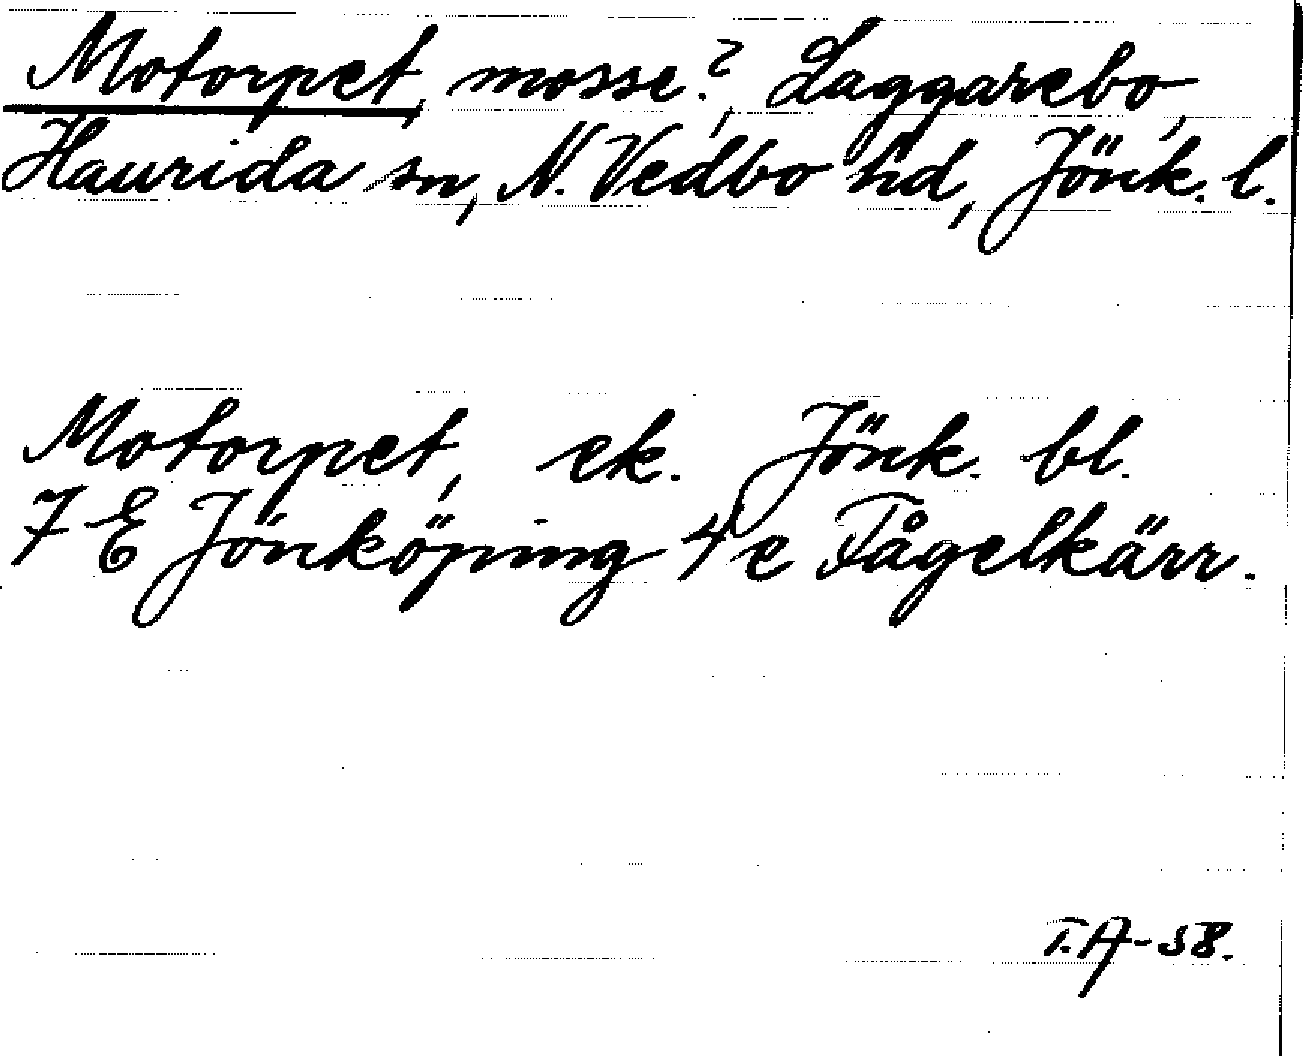 Motorpet, mosse?, Laggarebo,
Haurida sn, N. Vedbo hd, Jönk. l.
Motorpet, ek. Jönk. bl.
7 E Jönköping 4 e Fågelkärr.
T.A-58.